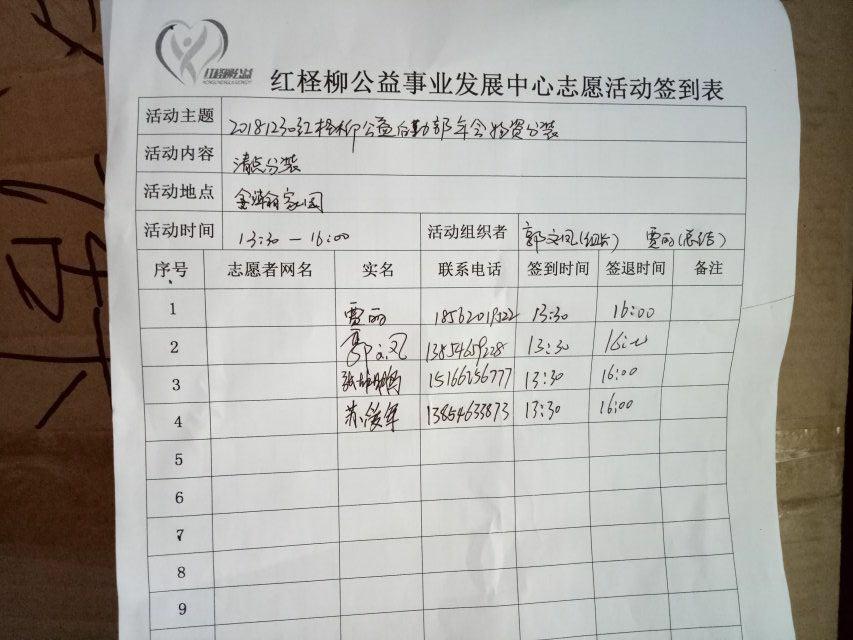 红柽柳公益
红柽柳公益事业发展中心志愿活动签到表
活动主题 20181230红柽柳公益后勤部年会物资分装
活动内容 清点分装
活动地点 金瀚家园
活动时间 13:30—16:00 活动组织者 郭文凤(组长) 贾丽(总结)
序号 志愿者网名 实名 联系电话 签到时间 签退时间 备注
1 贾丽 18562019522 13:30 16:00
2 郭文凤 13854659228 13:30 16:00
3 15166256777 13:30 16:00
4 13854633873 13:30 16:00
5
6
7
8
9